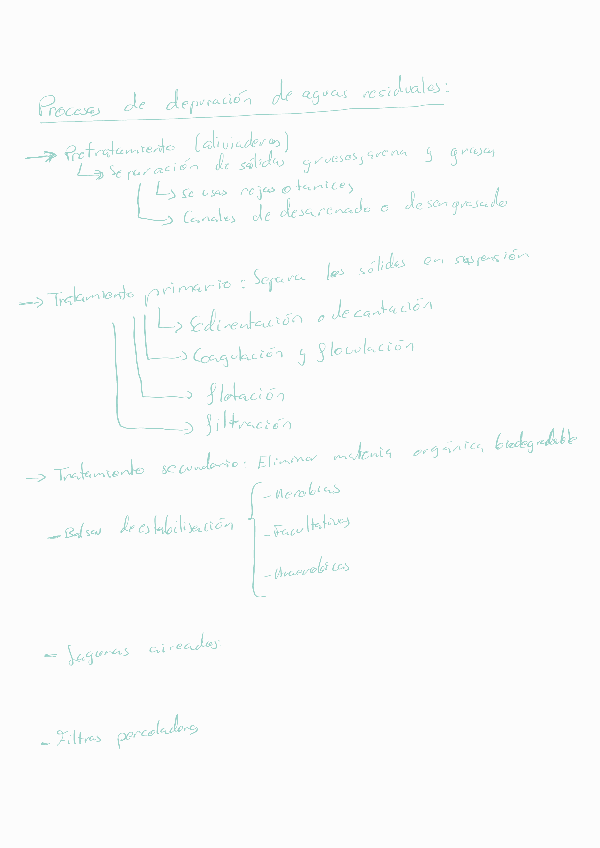 Procesos de depuración de aguas residuales:
→ Pretratamiento (aliviaderos)
↳ Separación de sólidos gruesos, arena y grasas
↳ se usas rejas o tamices
↳ Canales de desarenado o desengrasado
→ Tratamiento primario: Separa los sólidos en suspensión
↳ Sedimentación o decantación
→ Coagulación y floculación
→ flotación
→ filtración
→ Tratamiento secundario. Eliminar materia orgánica biodegradable
- Balsas de estabilización
- Aerobias
- Facultativas
- Anaerobicas
- Lagunas aireadas
- Filtros percoladores